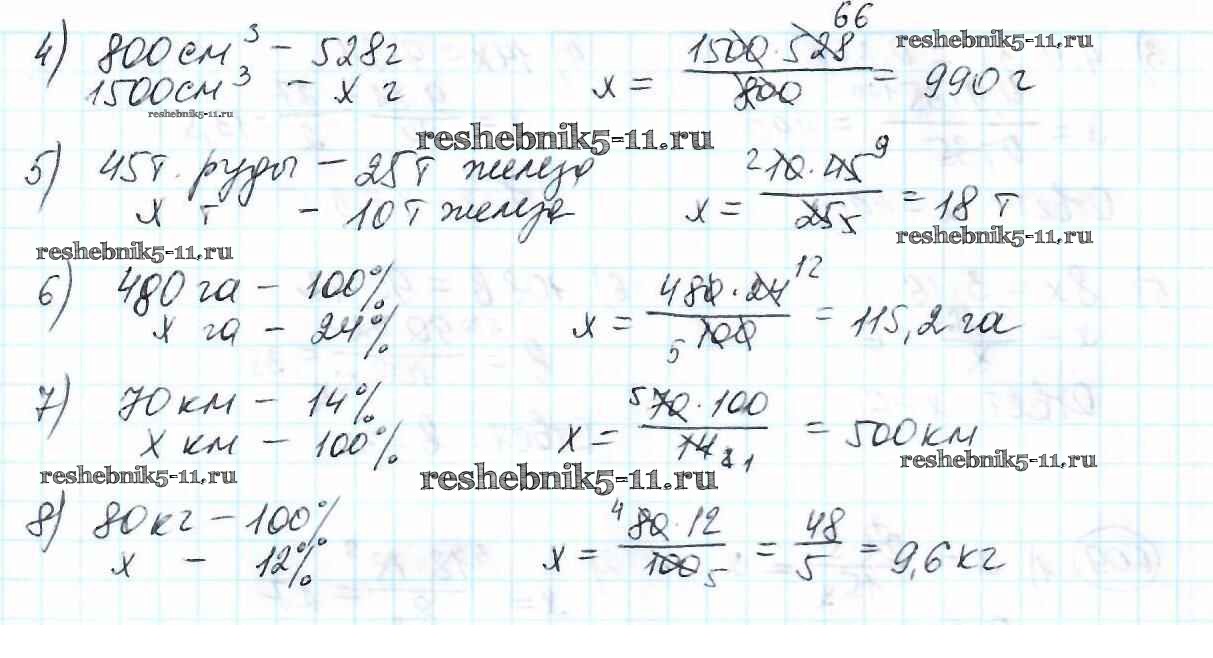 4) 800см³ – 528г
1500см³ – х г
х = 1500·528 66 / 800 = 990 г
reshebnik5-11.ru
reshebnik5-11.ru
reshebnik5-11.ru
5) 45т. руды – 25т железа
х т – 10т железа
х = 2 10·45 9 / 25 5 = 18 т
reshebnik5-11.ru
reshebnik5-11.ru
6) 480 га – 100%
х га – 24%
х = 480·24 12 / 5 100 = 115,2 га
7) 70 км – 14%
х км – 100%
х = 5 70·100 / 14 1 = 500 км
reshebnik5-11.ru
reshebnik5-11.ru
reshebnik5-11.ru
8) 80кг – 100%
х – 12%
х = 4 80·12 / 100 5 = 48 / 5 = 9,6 кг